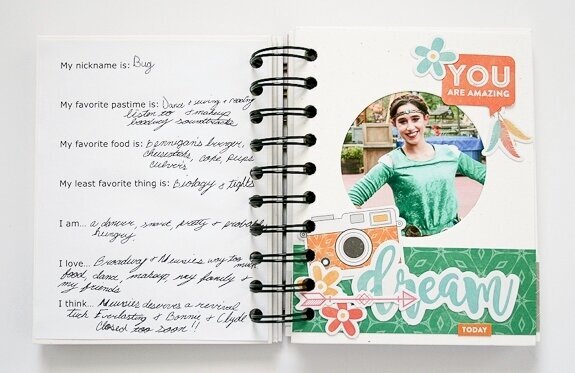 My nickname is: Bug
My favorite pastime is: Dance + sewing + reading
listen to + makeup
broadway soundtracks
My favorite food is: Bennigan's burger,
cheesesteak, coke, Pepsi
culver's
My least favorite thing is: Biology + tights
I am... a dancer, smart, pretty + probably
hungry.
I love... Broadway + Newsies way too much
food, dance, makeup, my family +
my friends
I think... Newsies deserves a revival
Tuck Everlasting + Bonnie + Clyde
closed too soon!!
YOU
ARE AMAZING
dream
TODAY